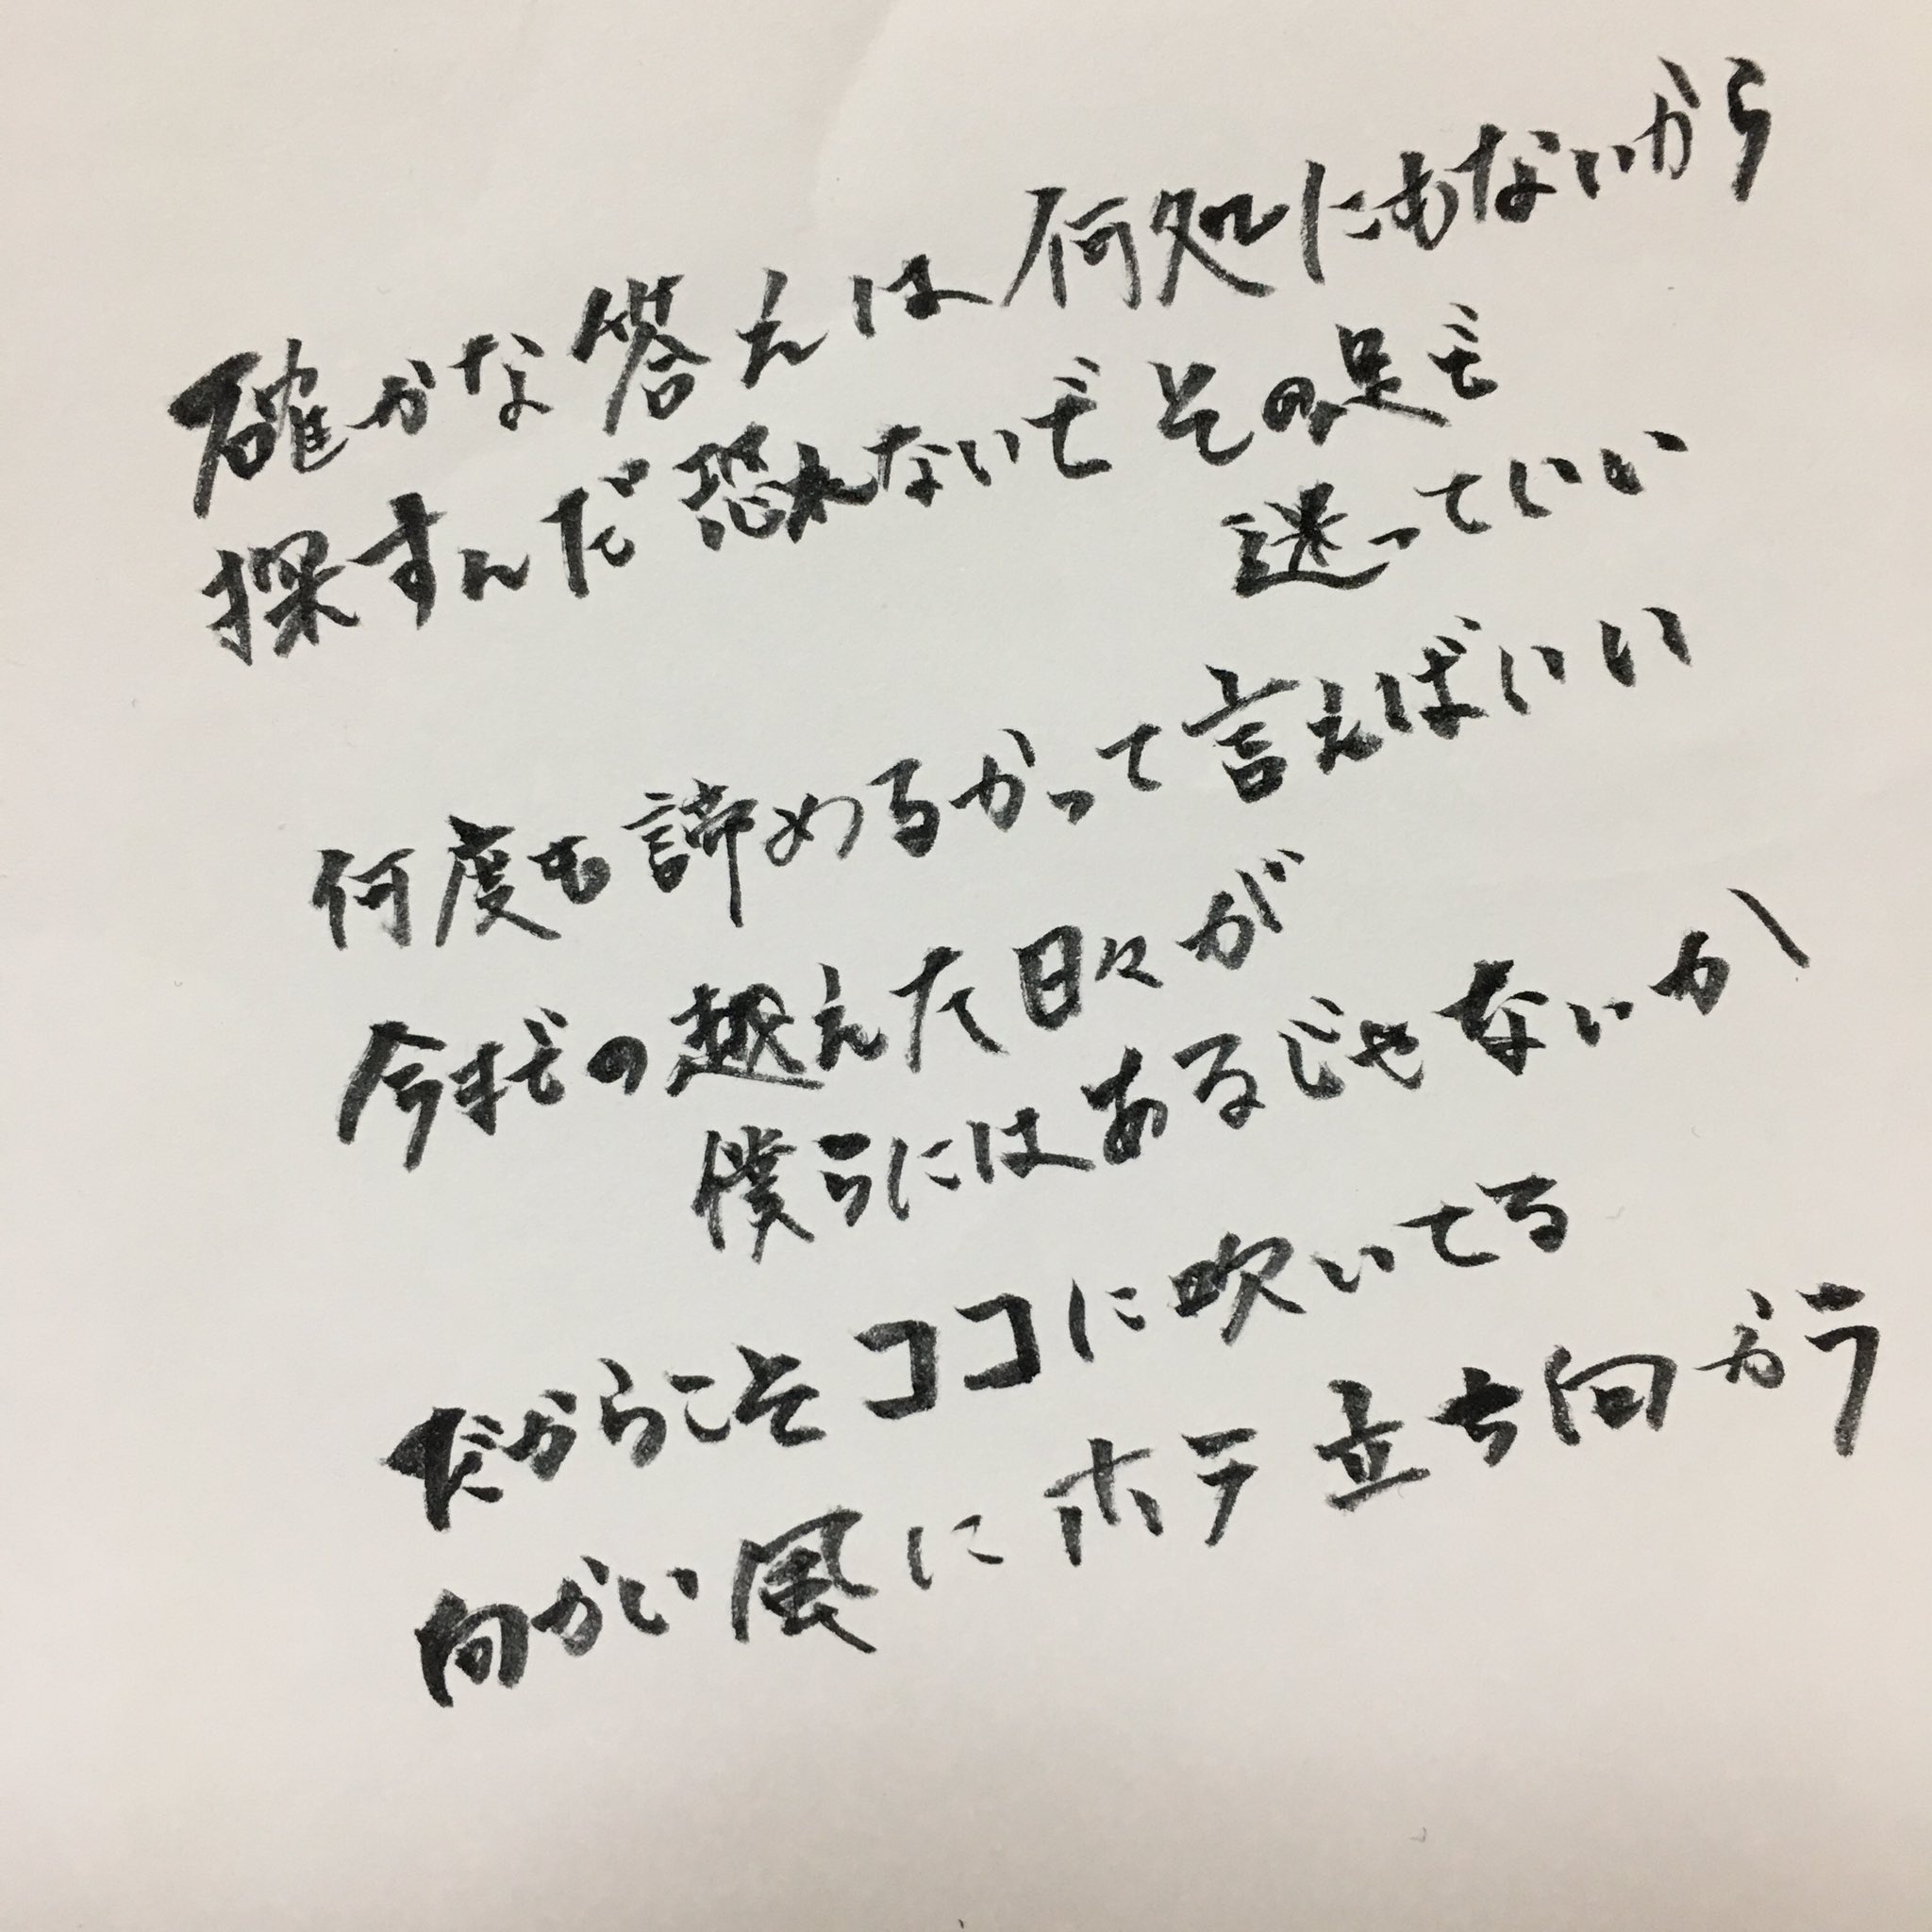 確かな答えは何処にもないから
探すんだ恐れないで その足で
迷っていい
何度も諦めるかって言えばいい
今までの越えた日々が
僕らにはあるじゃないか
だからこそココに吹いてる
向かい風に 立ち向かう